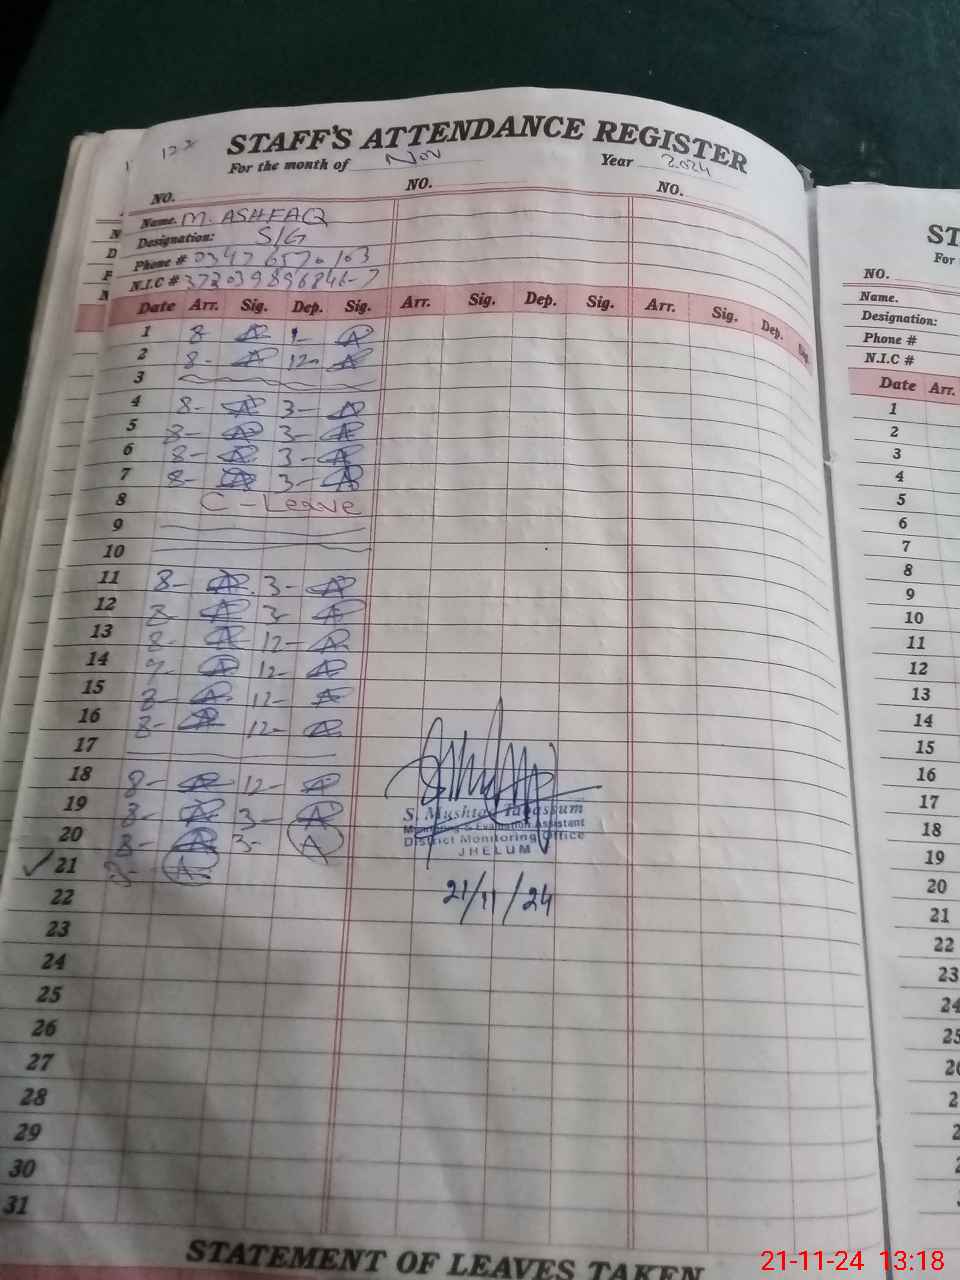 122
STAFF'S ATTENDANCE REGISTER
For the month of Nov Year 2024
NO. NO. NO.
Name. M. ASHFAQ
Designation: S/G
Phone # 0347 657 0 103
N.I.C # 372039896846-7
Date Arr. Sig. Dep. Sig. Arr. Sig. Dep. Sig. Arr. Sig. Dep. Sig.
1 8 A 1- A
2 8- A 12- A
3
4 8- A 3- A
5 8- A 3- A
6 8- A 3- A
7 8- A 3- A
8 C-Leave
9
10
11 8- A 3- A
12 8- A 3- A
13 8- A 12- A
14 A 12- A
15 8- A 12- A
16 8- A 12- A
17
18 8- A 12- A
19 8- A 3- A
20 8- A 3- A
21 8- A
22
23
24
25
26
27
28
29
30
31
S. Mushtaq Tabassum
Monitoring & Evaluation Assistant
District Monitoring Office
JHELUM
21/11/24
STATEMENT OF LEAVES TAKEN
ST
For
NO.
Name.
Designation:
Phone #
N.I.C #
Date Arr.
1
2
3
4
5
6
7
8
9
10
11
12
13
14
15
16
17
18
19
20
21
22
23
24
25
21-11-24 13:18